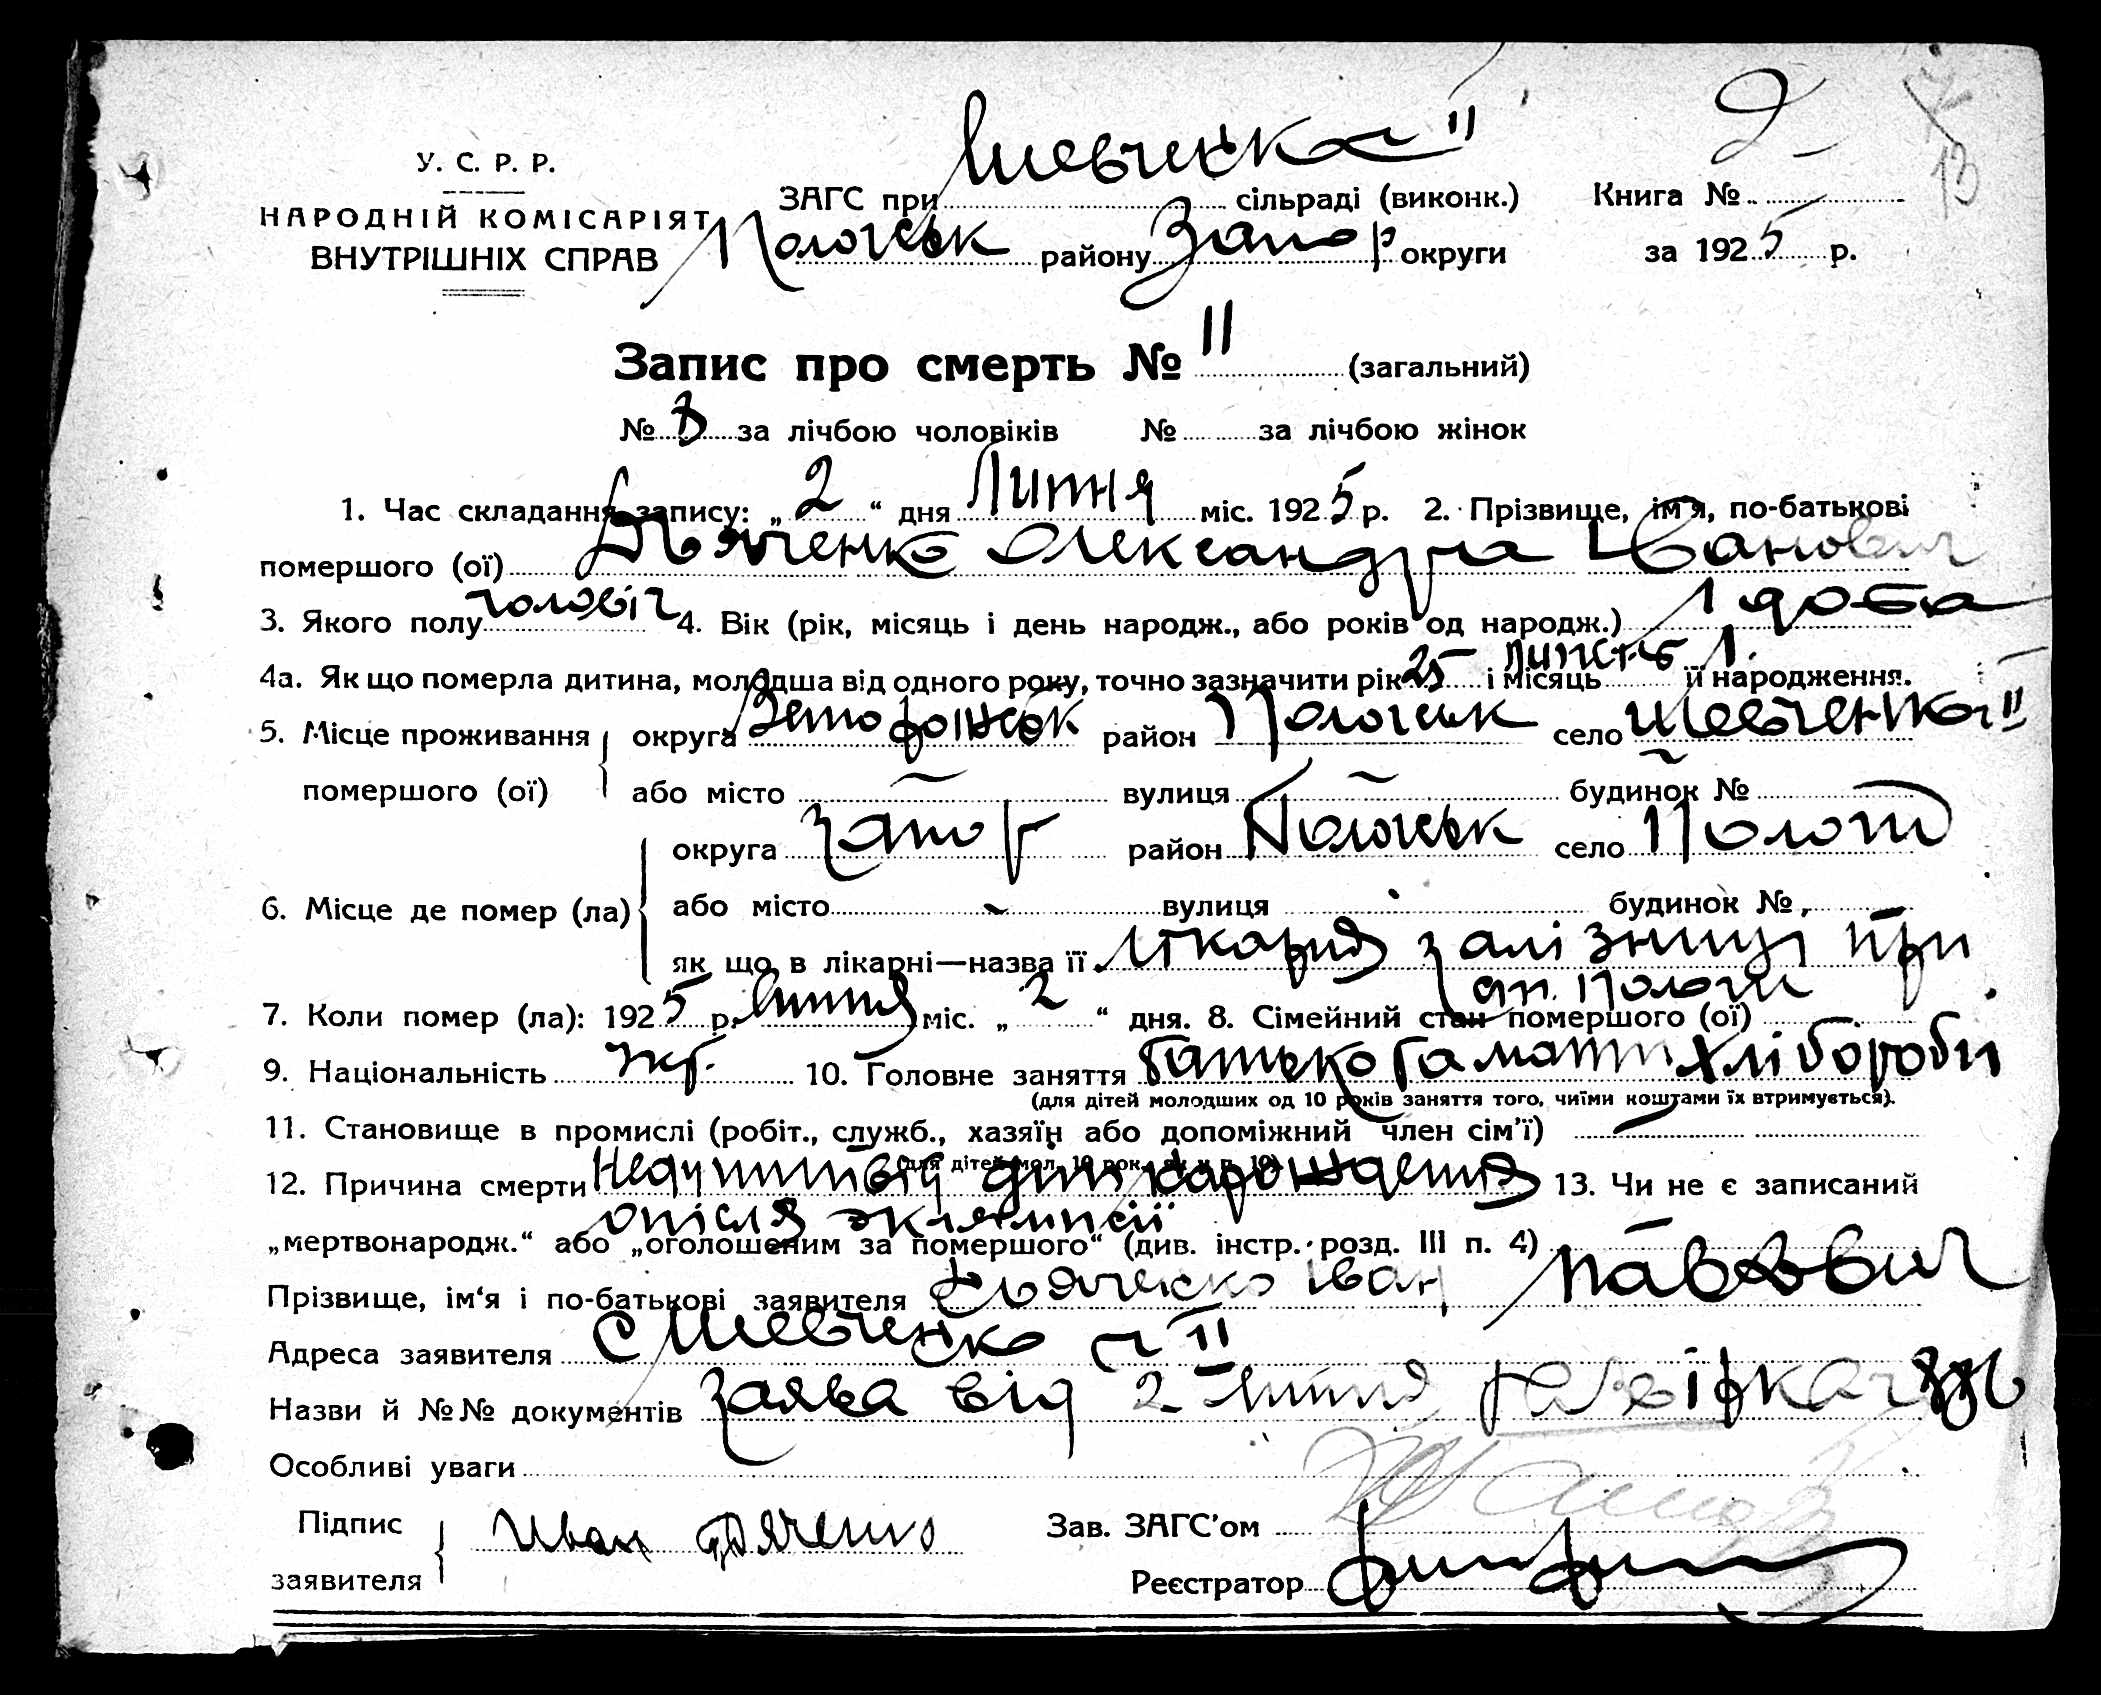 У. С. Р. Р.
НАРОДНІЙ КОМІСАРІЯТ
ВНУТРІШНІХ СПРАВ
ЗАГС при Шевченка II сільраді (виконк.)
Пологськ району Запор округи
Книга № 2
за 1925 р.
13
Запис про смерть № 11 (загальний)
№ 8 за лічбою чоловіків № за лічбою жінок
1. Час складання запису: „ 2 “ дня Липня міс. 1925 р. 2. Прізвище, ім'я, по-батькові
помершого (ої) Дьяченко Олександра Іванович
3. Якого полу чоловіч 4. Вік (рік, місяць і день народж., або років од народж.) 1 доба
4а. Як що померла дитина, молодша від одного року, точно зазначити рік 25 і місяць 1. її народження.
5. Місце проживання помершого (ої) округа район Пологськ село Шевченка II
або місто вулиця будинок №
6. Місце де помер (ла) округа Запор район Пологськ село Пологи
або місто - вулиця будинок № -
як що в лікарні—назва її Лікарня залізниці при
ст. Пологи
7. Коли помер (ла): 1925 р. Липня міс. „ 2 “ дня. 8. Сімейний стан помершого (ої) -
9. Національність Укр. 10. Головне заняття батько та мати хлібороби
(для дітей молодших од 10 років заняття того, чиїми коштами їх втримується).
11. Становище в промислі (робіт., служб., хазяїн або допоміжний член сім'ї)
(для дітей мол. 10 рок., як у п. 10)
12. Причина смерти 13. Чи не є записаний
опісля эклямпсії
„мертвонародж.“ або „оголошеним за помершого“ (див. інстр. розд. III п. 4) -
Прізвище, ім‘я і по-батькові заявителя Дьяченко Іван Павлович
Адреса заявителя с Шевченко II
Назви й №№ документів заява від 2 липня
Особливі уваги
Підпис заявителя Иван Дяченко
Зав. ЗАГС'ом
Реєстратор